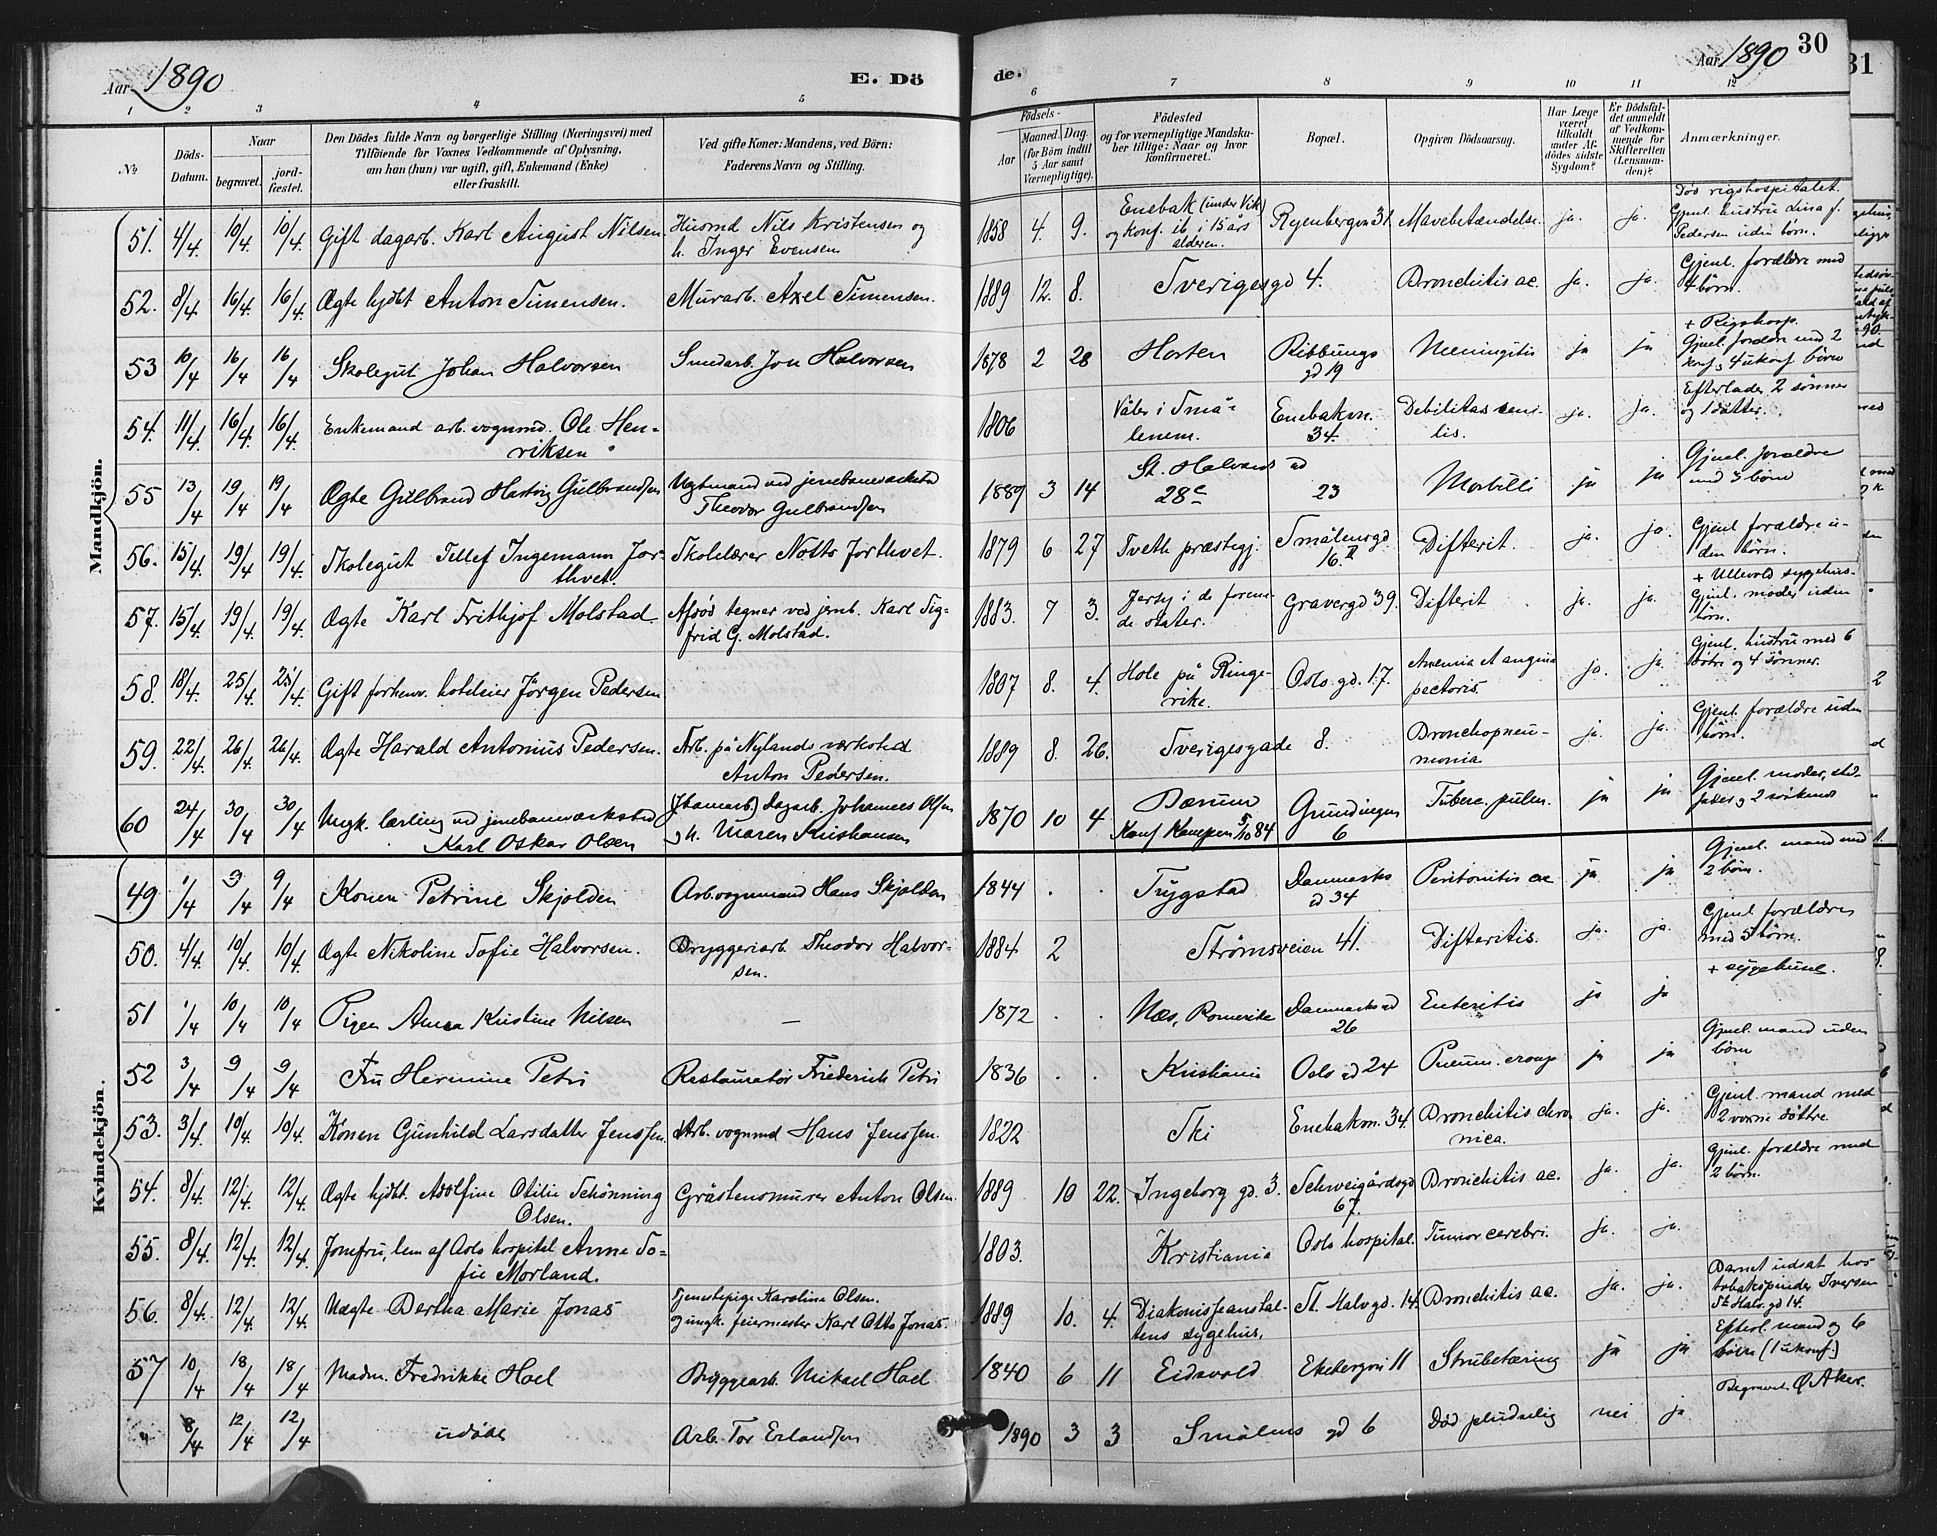 Aar 1890
E. Dö
de.
Aar 1890
30
31
1 2 3 4 5 6 7 8 9 10 11 12
No
Döds-
Datum.
Naar
begravet.
jord-
fæstet.
Den Dödes fulde Navn og borgerlige Stilling (Næringsvei) med
Tilföiende for Voxnes Vedkommende af Oplysning,
om han (hun) var ugift, gift, Enkemand (Enke)
eller fraskilt.
Ved gifte Koner: Mandens, ved Börn:
Faderens Navn og Stilling.
Födsels-
Aar
Maaned. Dag.
(for Börn indtil
5 Aar samt
Værnepligtige).
Födested
og for værnepligtige Mandska-
ber tillige: Naar og hvor
konfirmeret.
Bopæl.
Opgiven Dödsaarsag.
Har Læge
været
tilkaldt
under Af-
dödes sidste
Sygdom?
Er Dödsfal-
det anmeldt
af Vedkom-
mende for
Skifteretten
(Lensman-
den)?
Anmærkninger.
Mandkjön.
51. 4/4. 10/4. 10/4. Gift dagarb. Karl August Nilsen. Husmd Nils Kristensen og
h. Inger Evensen 1858 4. 9. Enebak (under Vik)
og konf. ib. i 15 års
alderen. Ryenbergvn 31. Mavebetændelse. ja. ja. Död rigshospitalet.
Gjenl. hustru Lina f.
Pedersen uden börn.
52. 8/4. 16/4. 16/4. Ægte hjdbt Anton Simensen. Murarb. Axel Simensen. 1889 12. 8. Sverigesgd 4. Bronchitis ac. ja. ja. Gjenl. forældre med
4 börn.
53 10/4 16/4 16/4 Skolegut Johan Halvorsen Smedarb. Jon Halvorsen 1878 2 28 Horten Ribbungs
gd 19 Meningitis ja ja + Rigshosp.
Gjenl. forældre med 2
konf., 4 ukonf. börn
54. 11/4. 16/4. 16/4. Enkemand arb. vognmd. Ole Hen-
riksen 1806 Våler i Små-
lenene. Enebakvn.
34. Debilitas seni-
lis. ja. ja. Efterlader 2 sönner
og 1 datter.
55 13/4 19/4 19/4 Ægte Gulbrand Hartvig Gulbrandsen Vegtmand ved jernbaneverksted
Theodor Gulbrandsen 1889 3 14 St. Halvards gd
28c 23 Morbilli ja ja Gjenl. forældre
med 3 börn
56. 15/4. 19/4. 19/4. Skolegut Tellef Ingemann Jor-
thvet. Skolelærer Notto Jorthvet. 1879 6 27 Tveth præstegj. Smålensgd
16. II Difterit. ja. ja. Gjenl forældre u-
den börn.
57. 15/4. 19/4. 19/4. Ægte Karl Frithjof Molstad. Afdöd tegner ved jernb. Karl Sig-
frid G. Molstad. 1883. 7 3. Jersey i de foren-
de stater. Gravergd 39. Difterit ja. ja. + Ullevold sygehus.
Gjenl. moder uden
börn.
58. 18/4. 25/4. 25/4. Gift forhenv. hoteleier Jörgen Pedersen 1807 8. 4. Hole på Ringe-
rike. Oslo gd. 17. Anemia et angina
pectoris. ja. ja. Gjenl. hustru med 6
dötre og 4 sönner.
59. 22/4. 26/4. 26/4. Ægte Harald Antonius Pedersen. Arb. på Nylands værksted
Anton Pedersen. 1889 8. 26. Sverigesgade 8. Bronchopneu-
monia ja. ja. Gjenl. forældre uden
börn.
60 24/4 30/4 30/4 Ungk. lærling ved jernbaneværksted
Karl Oskar Olsen dagarb. Johannes Olsen
og h. Maren Kristiansen 1870 10 4 Bærum
Konf Kampen 5/10 84 Grundingen
6 Tuberc. pulm. ja ja Gjenl. moder, sted-
fader og 2 söskende
Kvindekjön.
49 1/4 9/4 9/4 Konen Petrine Skjolden Arb.vognmand Hans Skjolden 1844 . . Trygstad Danmarks
gd 34 Peritonitis ac ja ja Gjenl. mand med
2 börn.
50. 4/4. 10/4. 10/4. Ægte Nikoline Sofie Halvorsen. Bryggeriarb. Theodor Halvor-
sen. 1884 2 Strömsveien 41. Difteritis. ja. ja. Gjenl forældre
med 5 börn.
51 1/4 10/4 10/4 Pigen Anna Kristine Nilsen — 1872 . . Næs, Romerike Danmarks gd
26 Enteritis ja ja + sygehuset.
52 3/4 9/4 9/4 Fru Hermine Petri Restauratör Friederich Petri 1836 . . Kristiania Oslo gd 24 Pneum. croup ja ja Gjenl. mand uden
börn
53. 3/4. 10/4. 10/4. Konen Gunhild Larsdatter Jenssen. Arb. vognmd Hans Jenssen. 1822 Ski Enebakvn. 34. Bronchitis chro
nica. ja. ja. Gjenl. mand med
2 voxne döttre.
54. 8/4. 12/4. 12/4. Ægte hjdbt. Adolfine Otilie Schönning
Olsen. Gråstensmurer Anton Olsen. 1889 10 22. Ingeborg gd. 3. Schweigårdsgd
67. Bronchitis ac. ja. ja. Gjenl. forældre med
2 börn.
55. 8/4. 12/4. 12/4. Jomfru, lem af Oslo hospital Anne So-
fie Morland. 1803. Kristiania Oslo hospital. Tumor cerebri. ja. ja.
56. 8/4. 12/4. 12/4. Uægte Bertha Marie Jonas Tjenestepige Karoline Olsen.
og ungk. feiermester Karl Otto Jonas. 1889 10. 4. Diakonisseanstal-
tens sygehus. St. Halv gd. 14. Bronchitis ac. ja. ja. Barnet udsat hos
tobakspinder Iversen
St. Halv. gd 14.
57 10/4 18/4 18/4 Madm. Fredrikke Hoel Bryggearb. Mikael Hoel 1840 6 11 Eidsvold Ekebergvn 11 Strubetæring ja ja Efterl. mand og 6
börn (1 ukonf.)
" 8/4 12/4 12/4 udöbt Arb. Tor Erlandsen 1890 3 3 Smålens gd 6 Död pludselig nei ja Begravet Ø. Aker.